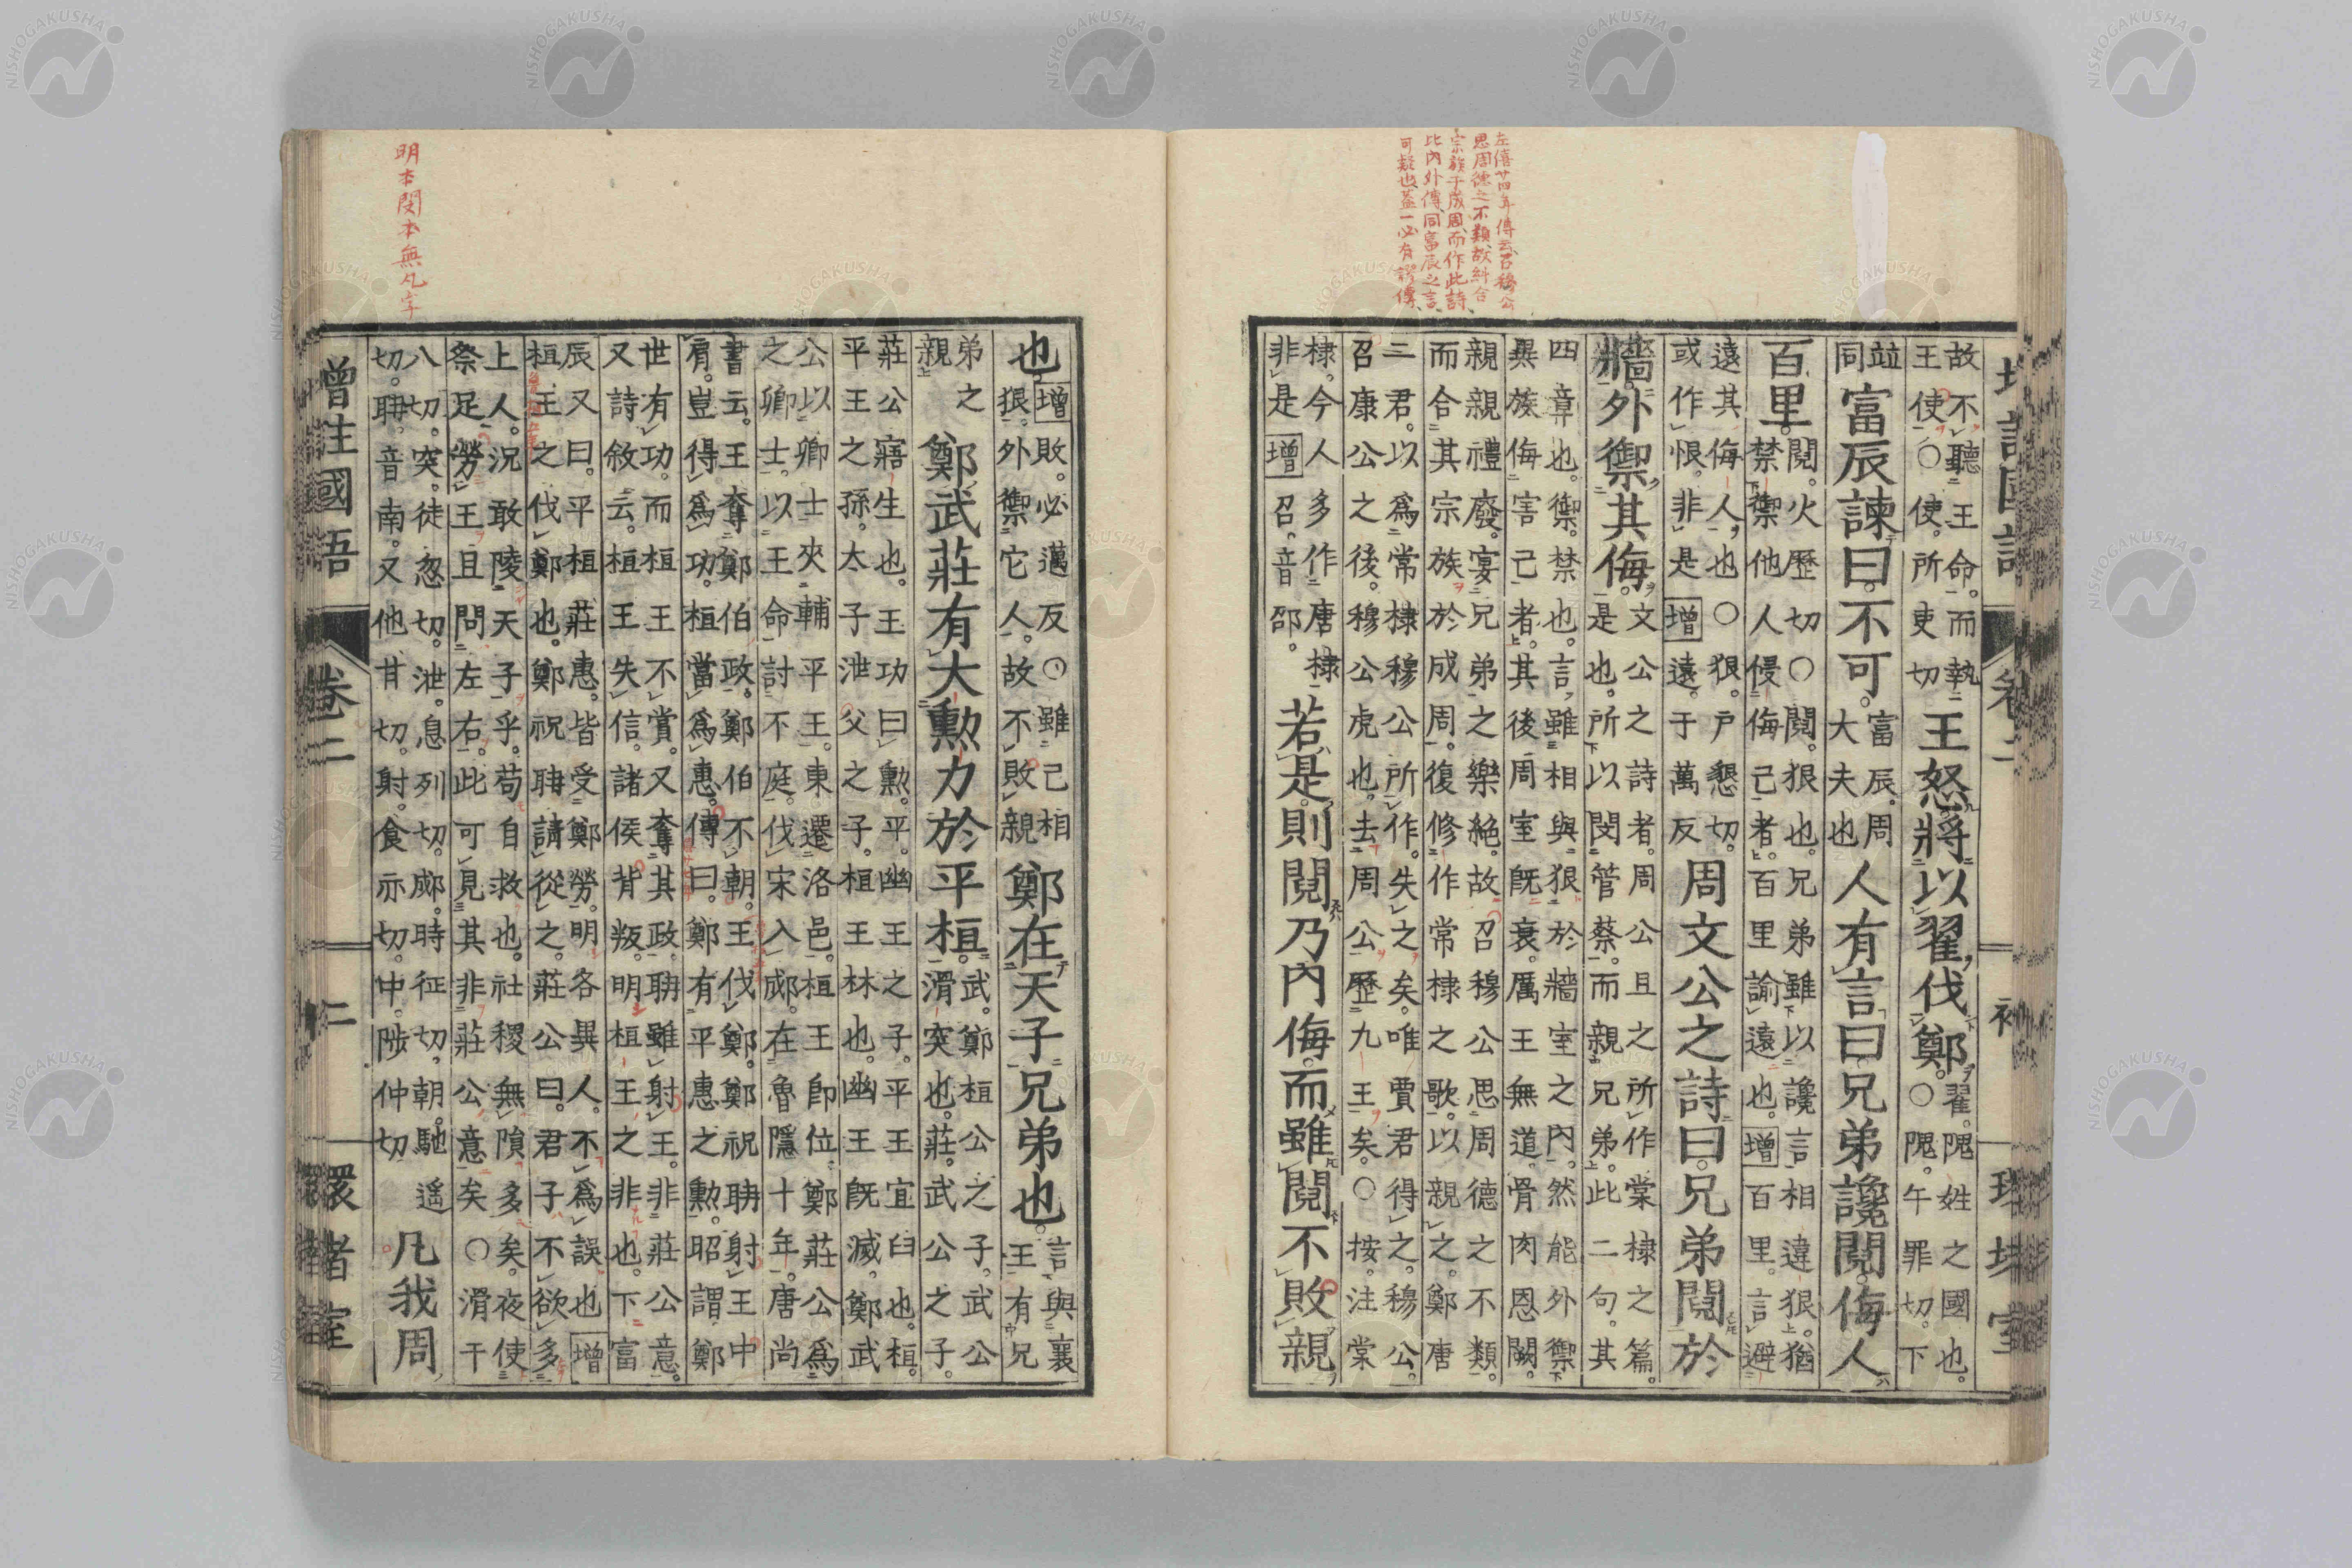 左僖廿四年傳云召穆公
思周德之不類故糾合
宗族于成周而作此詩
比內外傳同富辰之言
可疑也蓋一必有謬傳
故不聽王命而執
王使○使所吏切
王怒將以翟伐鄭
翟隗姓之國也
○隗午罪切下
竝
同
富辰諫曰不可
富辰周
大夫也
人有言曰兄弟讒鬩侮人
百里
鬩火歷切○鬩狠也兄弟雖以讒言相違狠猶
禁禦他人侵侮己者百里諭遠也增百里言避
遠其侮人也○狠戶懇切
或作恨非是增遠于萬反
周文公之詩曰兄弟鬩於
牆外禦其侮
文公之詩者周公旦之所作棠棣之篇
是也所以閔管蔡而親兄弟此二句其
四章也禦禁也言雖相與狠於牆室之內然能外禦
異族侮害己者其後周室既衰厲王無道骨肉恩闕
親親禮廢宴兄弟之樂絕故召穆公思周德之不類
而合其宗族於成周復修作常棣之歌以親之鄭唐
二君以為常棣穆公所作失之矣唯賈君得之穆公
召康公之後穆公虎也去周公歷九王矣○按注棠
棣今人多作唐棣
非是增召音邵
若是則鬩乃內侮而雖鬩不敗親
明本閔本無凡字
也
增敗必邁反○雖己相
狠外禦它人故不敗親
鄭在天子兄弟也
言與襄
王有兄
弟之
親
鄭武莊有大勲力於平桓
武鄭桓公之子武公
滑突也莊武公之子
莊公寤生也王功曰勲平幽王之子平王宜臼也桓
平王之孫太子泄父之子桓王林也幽王既滅鄭武
公以卿士夾輔平王東遷洛邑桓王卽位鄭莊公為
之卿士以王命討不庭伐宋入郕在魯隱十年唐尚
書云王奪鄭伯政鄭伯不朝王伐鄭鄭祝聃射王中
肩豈得為功桓當為惠傳曰鄭有平惠之勲昭謂鄭
世有功而桓王不賞又奪其政聃雖射王非莊公意
又詩敘云桓王失信諸侯背叛明桓王之非也下富
辰又曰平桓莊惠皆受鄭勞明各異人不為誤也增
桓王之伐鄭也鄭祝聃請從之莊公曰君子不欲多
上人況敢陵天子乎苟自救也社稷無隕多矣夜使
祭足勞王且問左右此可見其非莊公意矣○滑干
八切突徒忽切泄息列切郕時征切朝馳遙
切聃音南又他甘切射食亦切中陟仲切
凡我周
增注國語 卷二 二 環堵室
NISHOGAKUSHA